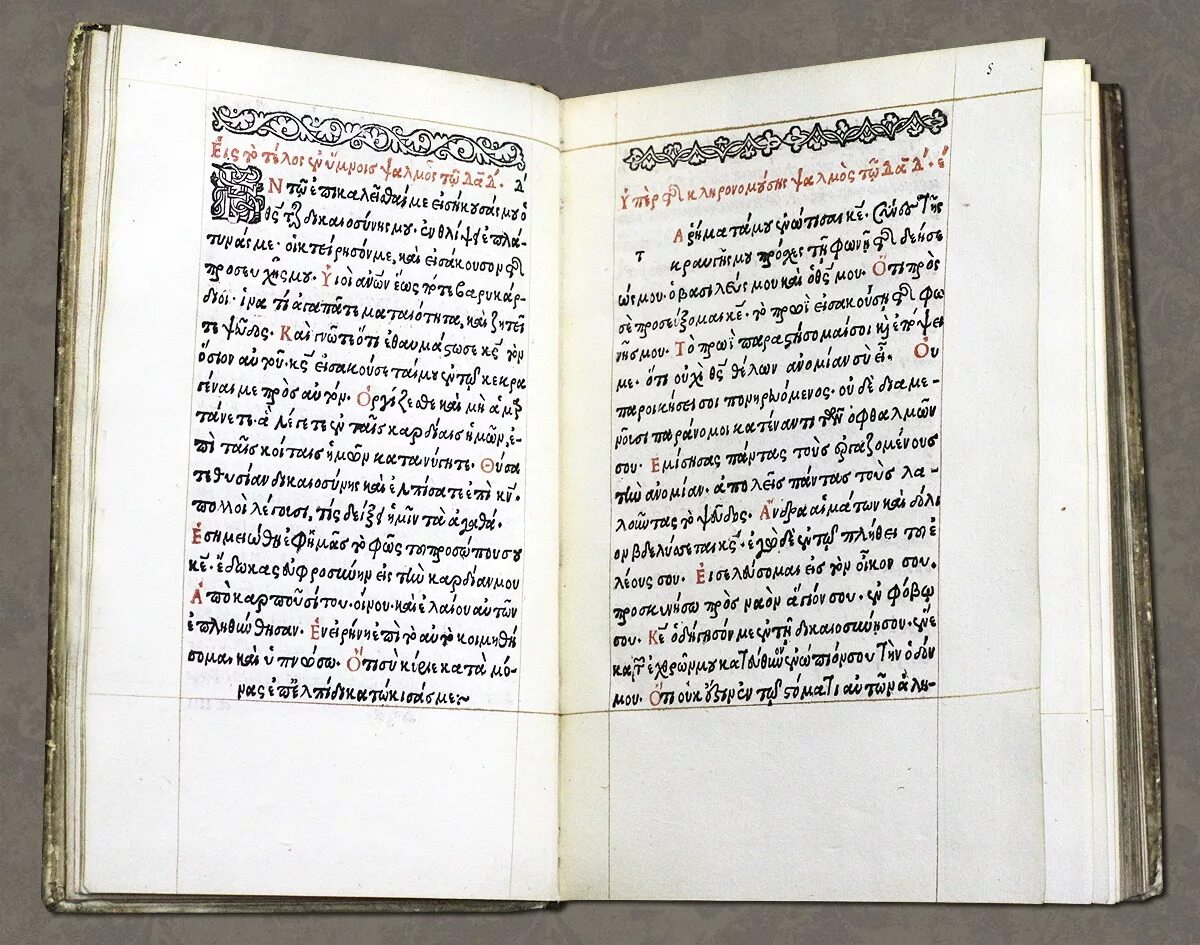 Εἰς τὸ τέλος ἐν ὕμνοις ψαλμὸς τῷ Δαδ. Δ
Ἐν τῷ ἐπικαλεῖσθαί με εἰσήκουσάς μου ὁ
θς τῆς δικαιοσύνης μου· ἐν θλίψει ἐπλά-
τυνάς με· οἰκτείρησόν με, καὶ εἰσάκουσον τῆς
προσευχῆς μου· Υἱοὶ ανῶν ἕως πότε βαρυκάρ-
διοι· ἱνα τί ἀγαπᾶτε ματαιότητα, καὶ ζητεῖ
τε ψεῦδος· Καὶ γνῶτε ὅτι ἐθαυμάστωσε κς τὸν
ὅσιον αὐτοῦ· κς εἰσακούσεταί μου ἐν τῷ κεκρα
γέναι με πρὸς αὐτόν· Ὀργίζεσθε καὶ μὴ ἁμαρ
τάνετε· ἃ λέγετε ἐν ταῖς καρδίαις ἡμῶν, ἐ-
πὶ ταῖς κοίταις ἡμῶν κατανύγητε· Θύσα
τε θυσίαν δικαιοσύνης καὶ ἐλπίσατε ἐπὶ κν·
πολλοὶ λέγουσι, τίς δείξει ἡμῖν τὰ ἀγαθά·
Ἐσημειώθη ἐφ ἡμᾶς τὸ φῶς τοῦ προσώπου σου
κε· ἔδωκας εὐφροσύνην εἰς τὴν καρδίαν μου
Ἀπὸ καρποῦ σίτου· οἴνου· καὶ ἐλαίου αὐτῶν
ἐπληθύνθησαν· Ἐν εἰρήνῃ ἐπὶ τὸ αὐτὸ κοιμηθή
σομαι καὶ ὑπνώσω· Ὅτι σὺ κύριε κατὰ μό-
νας ἐπ ἐλπίδι κατῴκισάς με~
5
Ὑπὲρ τῆς κληρονομούσης ψαλμὸς τῷ Δαδ· ἐ
τ Ἀ ῥήματά μου ἐνώτισαι κε· Σύνες τῆς
κραυγῆς μου πρόσχες τῇ φωνῇ τῆς δεήσε
ώς μου· ὁ βασιλεύς μου καὶ ὁ θς μου· Ὅτι πρὸς
σὲ προσεύξομαι κε· τὸ πρωῒ εἰσακούσῃ τῆς φω
νῆς μου· Τὸ πρωῒ παραστήσομαί σοι καὶ ἐπόψει
με· ὅτι οὐχὶ θς θέλων ἀνομίαν σὺ εἶ· Οὐ
παροικήσει σοι πονηρευόμενος· οὐδὲ διαμε-
νοῦσι παράνομοι κατέναντι τῶν ὀφθαλμῶν
σου· Ἐμίσησας πάντας τοὺς ἐργαζομένους
τὴν ἀνομίαν· ἀπολεῖς πάντας τοὺς λα-
λοῦντας τὸ ψεῦδος· Ἄνδρα αἱμάτων καὶ δόλι
ον βδελύσεται κς· ἐγὼ δὲ ἐν τῷ πλήθει τοῦ ἐ
λέους σου· Εἰσελεύσομαι εἰς τὸν οἶκον σου.
προσκυνήσω πρὸς ναὸν ἅγιόν σου· ἐν φόβῳ
σου· Κε ὁδήγησόν με ἐν τῇ δικαιοσύνῃ σου· ἕνε
κα τῶν ἐχθρῶν μου κατεύθυνον ἐνώπιόν σου τὴν ὁδόν
μου· Ὅτι οὐκ ἔστιν ἐν τῷ στόματι αὐτῶν ἀλή-